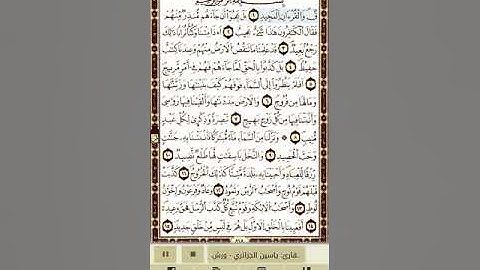 قَ وَالْقُرْءَانِ الْمَجِيدِ ١ بَلْ عَجِبُوا أَن جَاءَهُم مُّنذِرٌ مِّنْهُمْ
فَقَالَ الْكَٰفِرُونَ هَٰذَا شَيْءٌ عَجِيبٌ ٢ أَ.ذَا مِتْنَا وَكُنَّا تُرَابًا ذَٰلِكَ
رَجْعٌ بَعِيدٌ ٣ قَدْ عَلِمْنَا مَا تَنقُصُ الْأَرْضُ مِنْهُمْ وَعِندَنَا كِتَٰبٌ
حَفِيظٌ ٤ بَلْ كَذَّبُوا بِالْحَقِّ لَمَّا جَاءَهُمْ فَهُمْ فِي أَمْرٍ مَّرِيجٍ
٥ أَفَلَمْ يَنظُرُوا إِلَى السَّمَاءِ فَوْقَهُمْ كَيْفَ بَنَيْنَٰهَا وَزَيَّنَّٰهَا
وَمَا لَهَا مِن فُرُوجٍ ٦ وَالْأَرْضَ مَدَدْنَٰهَا وَأَلْقَيْنَا فِيهَا رَوَٰسِيَ
وَأَنبَتْنَا فِيهَا مِن كُلِّ زَوْجٍ بَهِيجٍ ٧ تَبْصِرَةً وَذِكْرَىٰ لِكُلِّ عَبْدٍ
مُّنِيبٍ ٨ وَنَزَّلْنَا مِنَ السَّمَاءِ مَاءً مُّبَٰرَكًا فَأَنبَتْنَا بِهِ جَنَّٰتٍ
وَحَبَّ الْحَصِيدِ ٩ وَالنَّخْلَ بَاسِقَٰتٍ لَّهَا طَلْعٌ نَّضِيدٌ ١٠
رِّزْقًا لِّلْعِبَادِ وَأَحْيَيْنَا بِهِ بَلْدَةً مَّيْتًا كَذَٰلِكَ الْخُرُوجُ ١١ كَذَّبَتْ
قَبْلَهُمْ قَوْمُ نُوحٍ وَأَصْحَٰبُ الرَّسِّ وَثَمُودُ ١٢ وَعَادٌ وَفِرْعَوْنُ وَإِخْوَٰنُ
لُوطٍ ١٣ وَأَصْحَٰبُ الْأَيْكَةِ وَقَوْمُ تُبَّعٍ كُلٌّ كَذَّبَ الرُّسُلَ فَحَقَّ وَعِيدِ
١٤ أَفَعَيِينَا بِالْخَلْقِ الْأَوَّلِ بَلْ هُمْ فِي لَبْسٍ مِّنْ خَلْقٍ جَدِيدٍ ١٥
قارئ: ياسين الجزائري - ورش